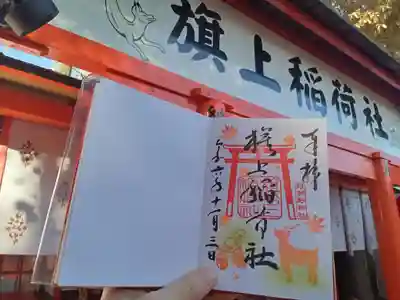 旗上稲荷社
奉拝
旗上稲荷社
令和六年十一月三日